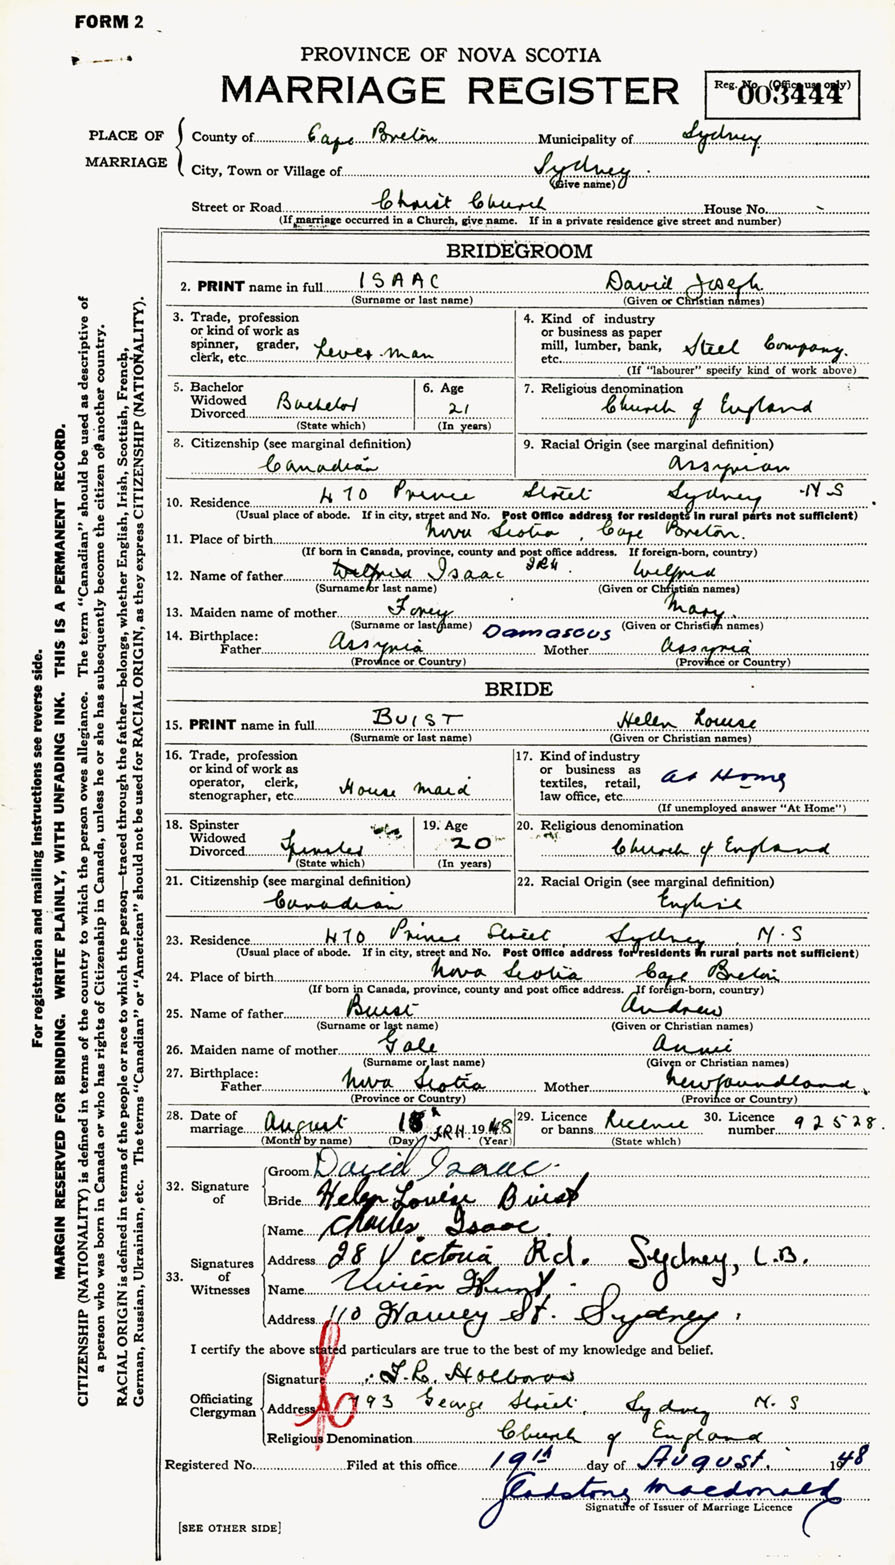 FORM 2
PROVINCE OF NOVA SCOTIA
MARRIAGE REGISTER
Reg. No. (Office use only)
003444
PLACE OF MARRIAGE
County of Cape Breton Municipality of Sydney
City, Town or Village of Sydney
(Give name)
Street or Road Christ Church House No. -
(If marriage occurred in a Church, give name. If in a private residence give street and number)
BRIDEGROOM
2. PRINT name in full ISAAC David Joseph
(Surname or last name) (Given or Christian names)
3. Trade, profession or kind of work as spinner, grader, clerk, etc. Lever-man
4. Kind of industry or business as paper mill, lumber, bank, etc. Steel Company.
(If "labourer" specify kind of work above)
5. Bachelor Widowed Divorced Bachelor
(State which)
6. Age 21
(In years)
7. Religious denomination
Church of England
8. Citizenship (see marginal definition)
Canadian
9. Racial Origin (see marginal definition)
Assyrian
10. Residence 470 Prince Street Sydney N-S
(Usual place of abode. If in city, street and No. Post Office address for residents in rural parts not sufficient)
11. Place of birth Nova Scotia, Cape Breton.
(If born in Canada, province, county and post office address. If foreign-born, country)
12. Name of father Wilfrid Isaac Wilfred
(Surname or last name) (Given or Christian names)
13. Maiden name of mother Mary
(Surname or last name) (Given or Christian names)
14. Birthplace: Damascus
Father Assyria Mother Assyria
(Province or Country) (Province or Country)
BRIDE
15. PRINT name in full BUIST Helen Louise
(Surname or last name) (Given or Christian names)
16. Trade, profession or kind of work as operator, clerk, stenographer, etc. House Maid
17. Kind of industry or business as textiles, retail, law office, etc. At Home
(If unemployed answer "At Home")
18. Spinster Widowed Divorced Spinster
(State which)
19. Age 20
(In years)
20. Religious denomination
Church of England
21. Citizenship (see marginal definition)
Canadian
22. Racial Origin (see marginal definition)
English
23. Residence 470 Prince Street, Sydney, N.S
(Usual place of abode. If in city, street and No. Post Office address for residents in rural parts not sufficient)
24. Place of birth Nova Scotia Cape Breton
(If born in Canada, province, county and post office address. If foreign-born, country)
25. Name of father Buist Andrew
(Surname or last name) (Given or Christian names)
26. Maiden name of mother Gale Annie
(Surname or last name) (Given or Christian names)
27. Birthplace:
Father Nova Scotia Mother Newfoundland
(Province or Country) (Province or Country)
28. Date of marriage August 18 1948
(Month by name) (Day) (Year)
29. Licence or banns Licence
(State which)
30. Licence number 92528.
32. Signature of
Groom David Isaac
Bride Helen Louise Buist
33. Signatures of Witnesses
Name Charles Isaac
Address 28 Victoria Rd. Sydney, C.B.
Name Vivien Hunt
Address 110 Harvey St. Sydney
I certify the above stated particulars are true to the best of my knowledge and belief.
Officiating Clergyman
Signature
Address 793 George Street, Sydney N.S
Religious Denomination Church of England
Registered No. Filed at this office 19th day of August. 1948
Gladstone Macdonald
Signature of Issuer of Marriage Licence
[SEE OTHER SIDE]
For registration and mailing instructions see reverse side.
MARGIN RESERVED FOR BINDING. WRITE PLAINLY, WITH UNFADING INK. THIS IS A PERMANENT RECORD.
CITIZENSHIP (NATIONALITY) is defined in terms of the country to which the person owes allegiance. The term "Canadian" should be used as descriptive of
a person who was born in Canada or who has rights of Citizenship in Canada, unless he or she has subsequently become the citizen of another country.
RACIAL ORIGIN is defined in terms of the people or race to which the person—traced through the father—belongs, whether English, Irish, Scottish, French,
German, Russian, Ukrainian, etc. The terms "Canadian" or "American" should not be used for RACIAL ORIGIN, as they express CITIZENSHIP (NATIONALITY).